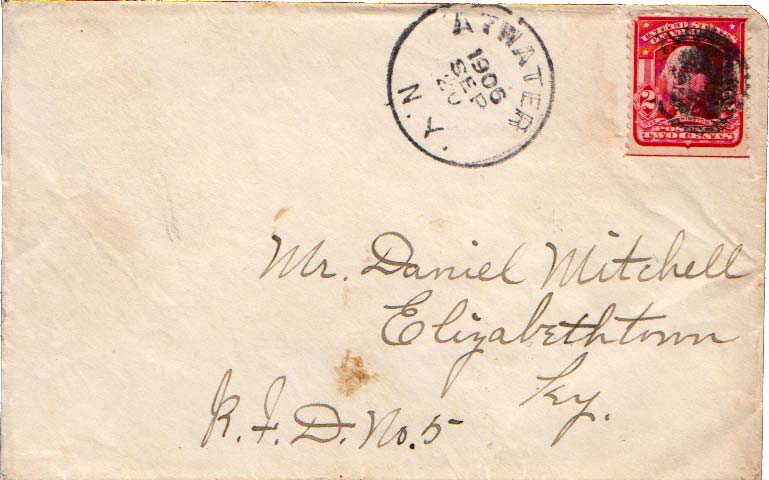 ATWATER
1906
SEP
20
N.Y.
UNITED STATES
2
POSTAGE
TWO CENTS
Mr. Daniel Mitchell
Elizabethtown
Ky.
R.F.D. No. 5